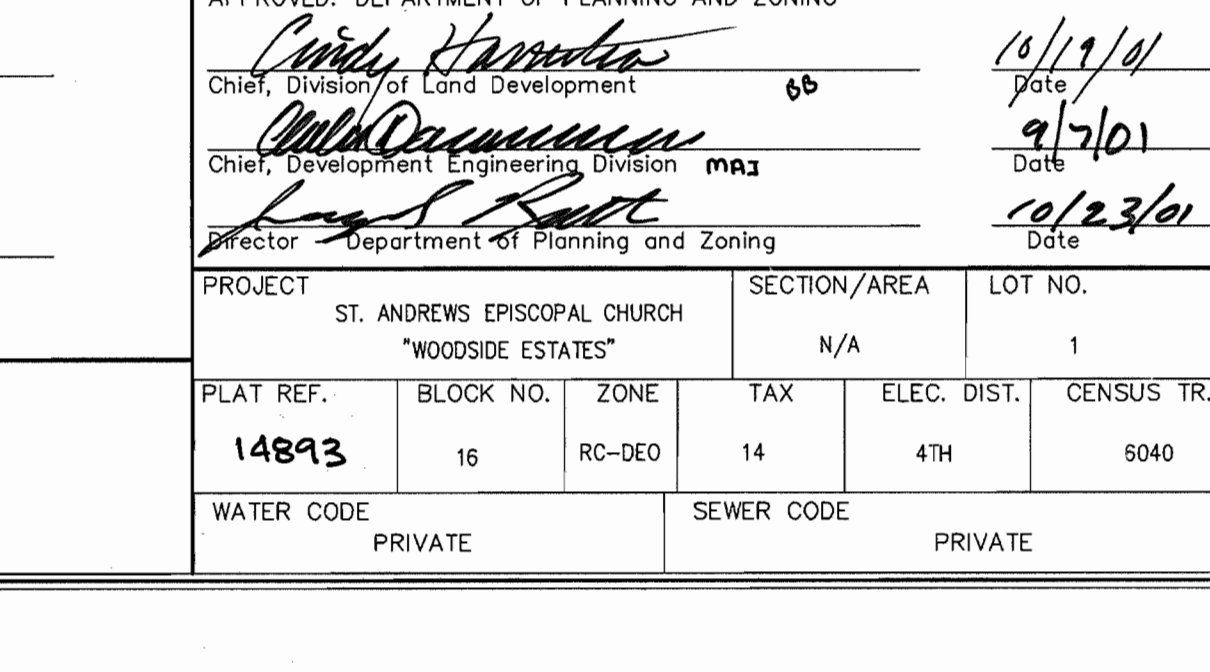 APPROVED: DEPARTMENT OF PLANNING AND ZONING
Cindy 10/19/01
Chief, Division of Land Development BB Date
9/7/01
Chief, Development Engineering Division MAJ Date
10/23/01
Director - Department of Planning and Zoning Date
PROJECT SECTION/AREA LOT NO.
ST. ANDREWS EPISCOPAL CHURCH
"WOODSIDE ESTATES" N/A 1
PLAT REF. BLOCK NO. ZONE TAX ELEC. DIST. CENSUS TR.
14893 16 RC-DEO 14 4TH 6040
WATER CODE SEWER CODE
PRIVATE PRIVATE